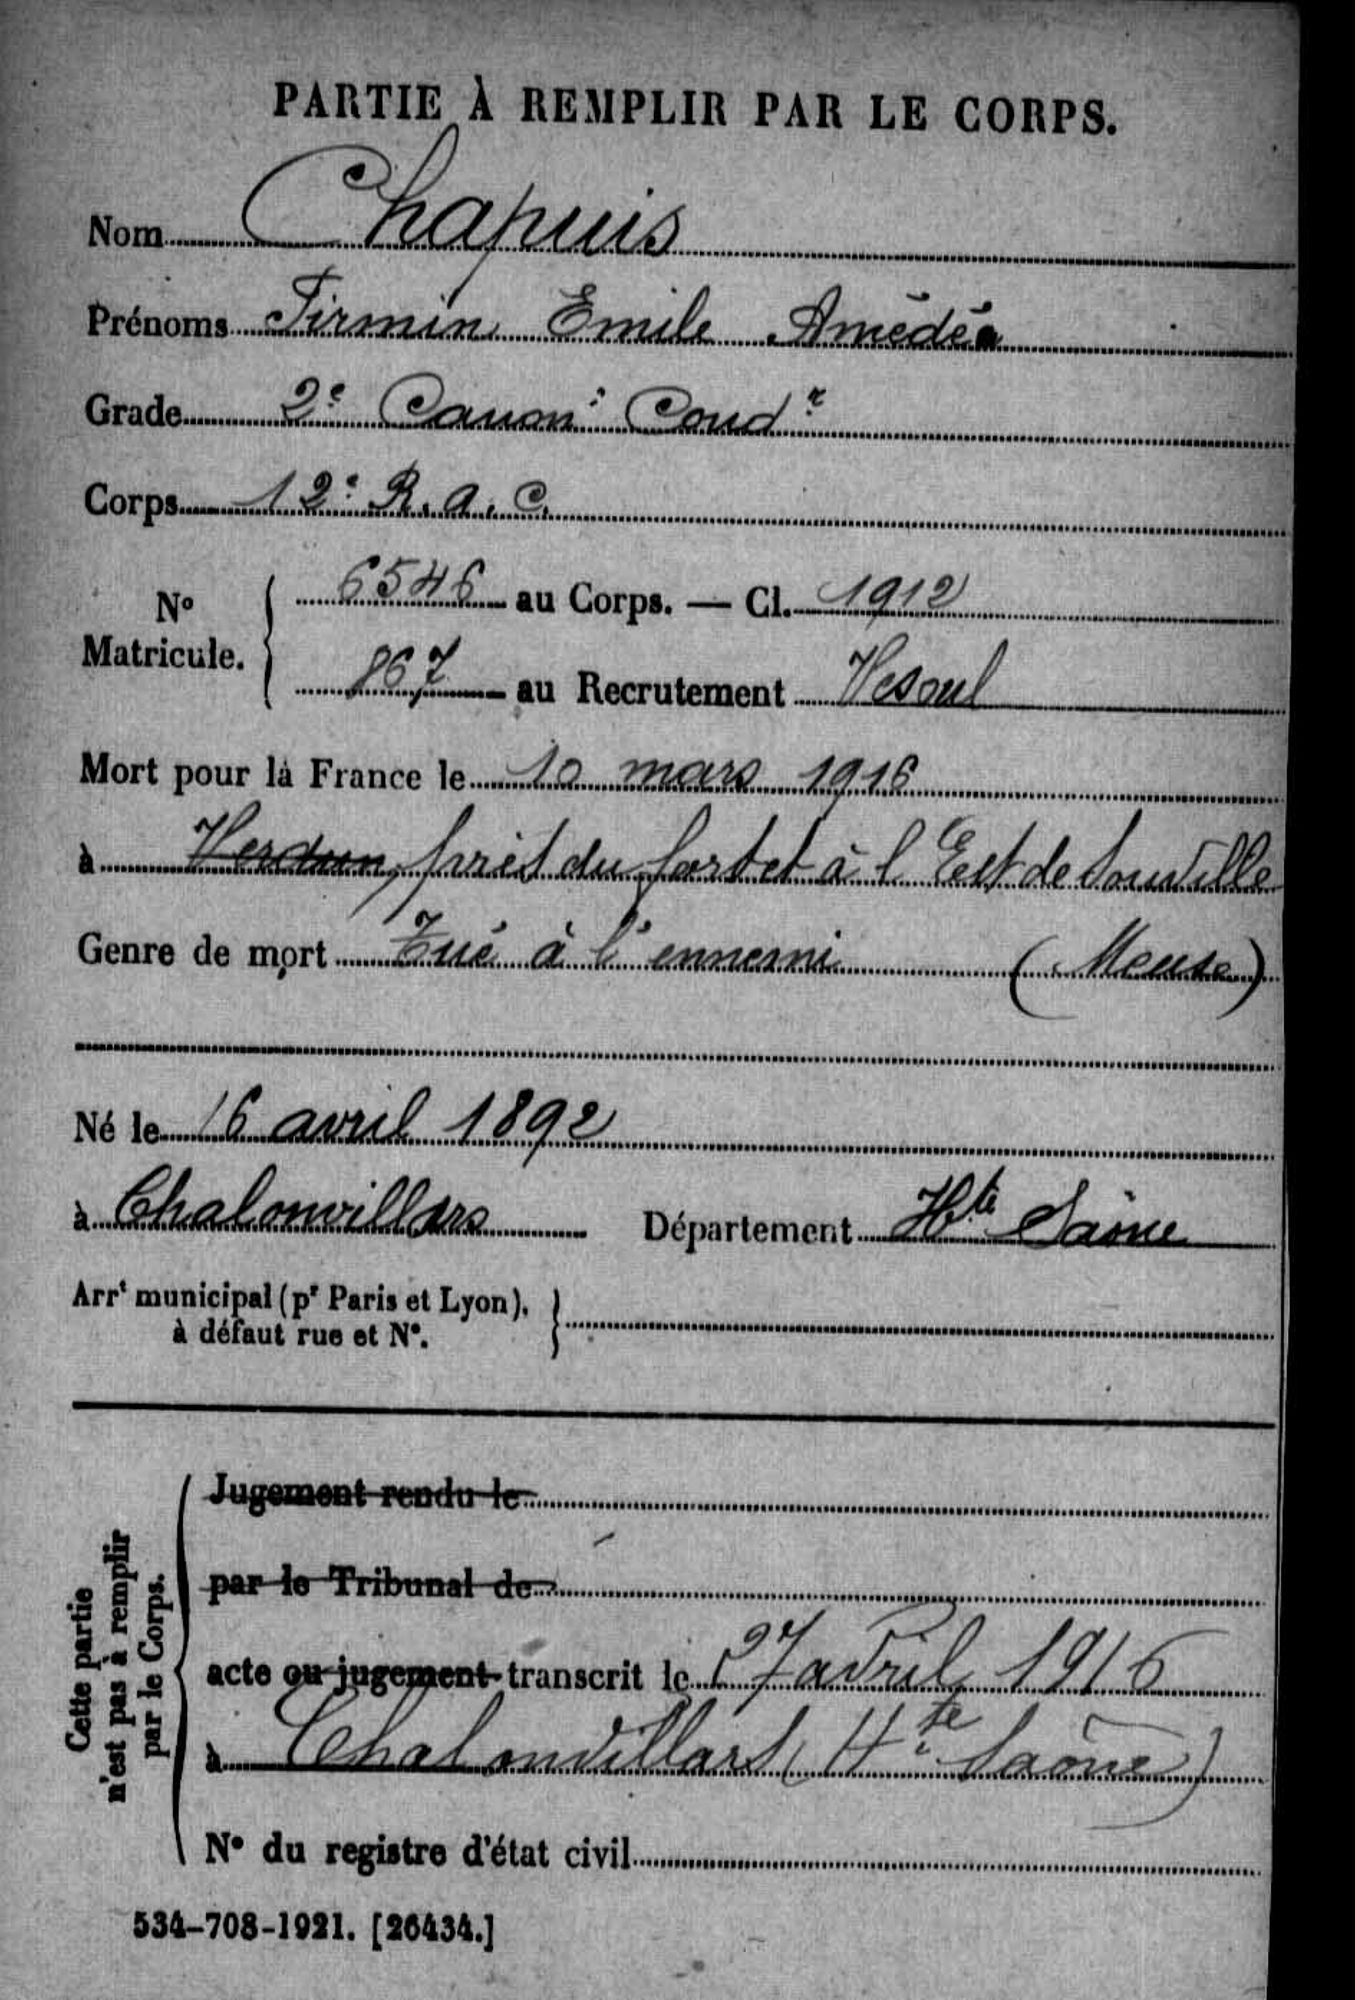 PARTIE À REMPLIR PAR LE CORPS.
Nom Chapuis
Prénoms Firmin Emile Amédée
Grade 2e Canonr Condr
Corps 12e R.a.C.
No
Matricule.
6546 au Corps. — Cl. 1912
867 au Recrutement Vesoul
Mort pour la France le 10 mars 1916
à Verdun, près du fort et à l'Est de Souville
Genre de mort Tué à l'ennemi (Meuse)
Né le 16 avril 1892
à Chalonvillars Département Hte Saône
Arrt municipal (pr Paris et Lyon),
à défaut rue et No.
Cette partie
n'est pas à remplir
par le Corps.
Jugement rendu le
par le Tribunal de
acte ou jugement transcrit le 27 avril 1916
à Chalonvillars (Hte Saône)
No du registre d'état civil
534-708-1921. [26434.]